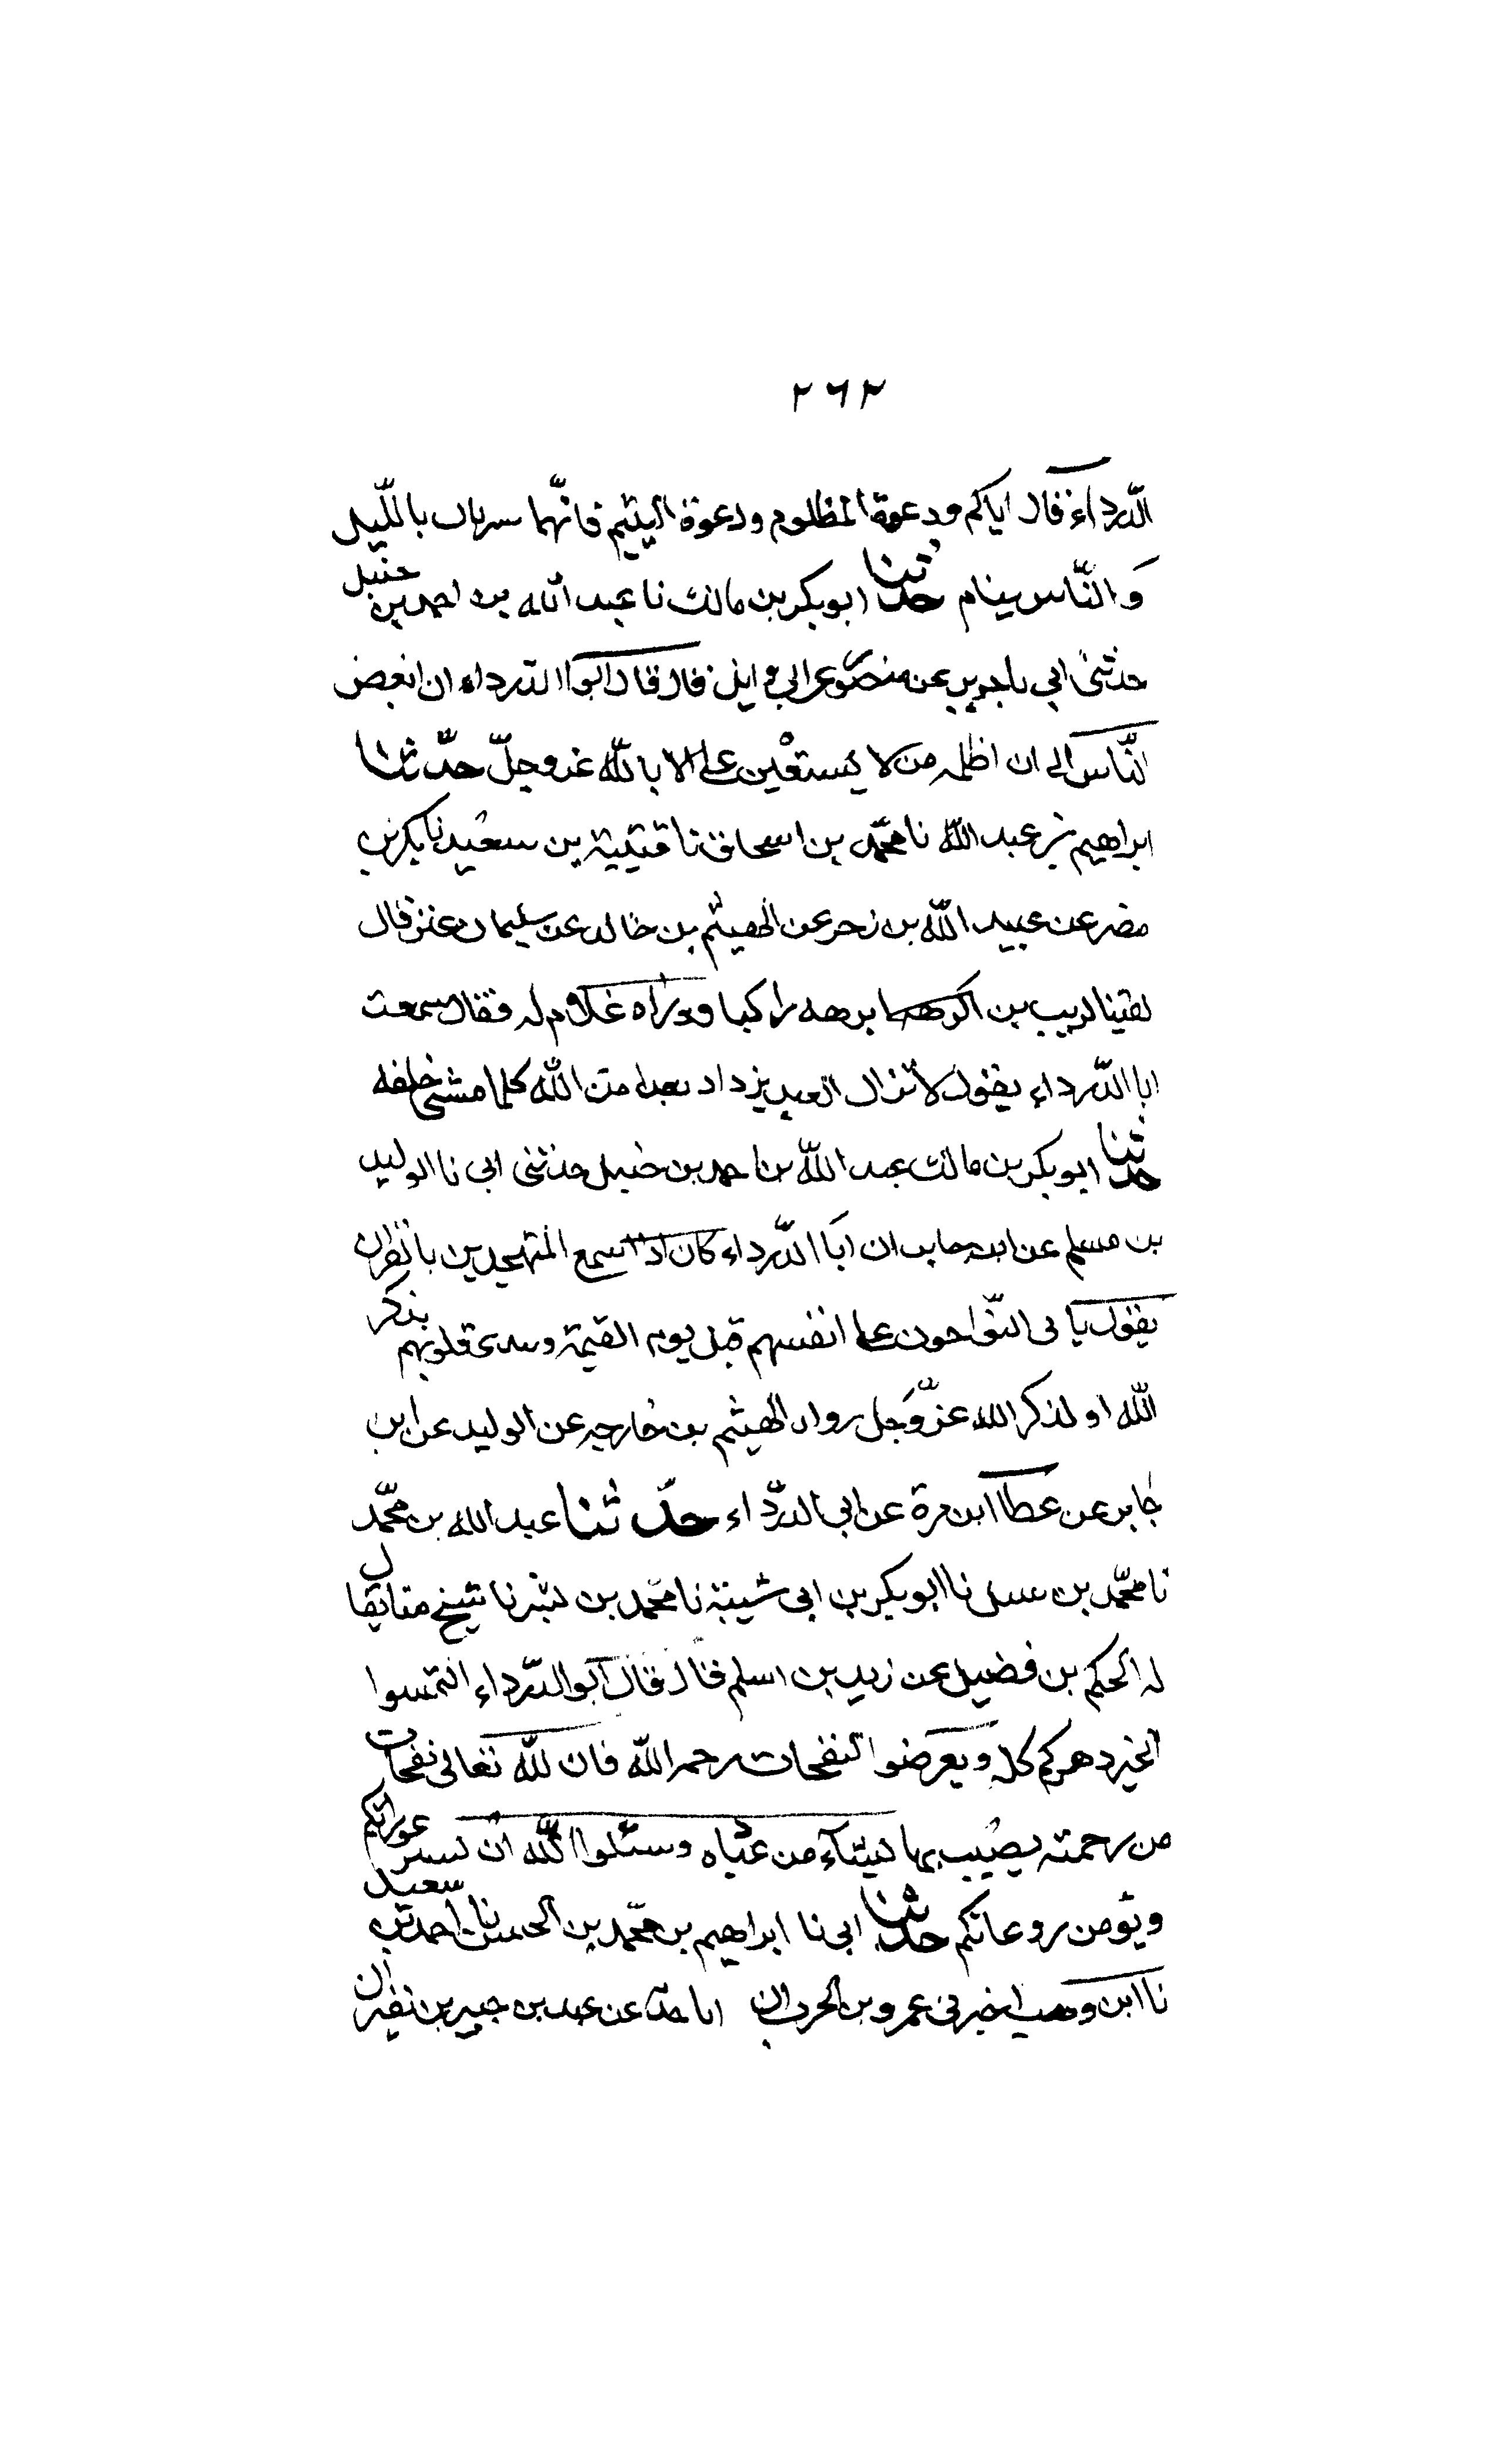 ٢٦٢
الدّرداء قال اياكم ودعوة المظلوم ودعوة اليتيم فانّهما سريان بالليل
وَالنّاس ينام حدثنا ابو بكر بن مالك نا عبد الله بن احمد بن حنبل
حدثنى ابي نا جرير عن منصور عن ابي وايل قال قال ابوا الدّرداء ان ابغض
النّاس الى ان اظلمه من لا يستعين على الا بالله عز وجلّ حدّثنا
ابراهيم بن عبد الله نا محمّد بن اسحاق نا قتيبة بن سعيد نا بكر بن
مضر عن عبيد الله بن زحر عن الهيثم بن خالد عن سليمان عنز قال
لقينا كريب بن ابرهه راكبا ووراه غلام له فقال سمعت
ابا الدّرداء يقول لا تزال العبد يزداد بعدا من الله كلما مشى خلفه
حدثنا ابو بكر بن مالك عبد الله بن احمد بن حنبل حدثنى ابى نا الوليد
بن مسلم عن ابن جابر ان ابَا الدّرداء كان اذا سمع المتهجدين بالقران
يقول بابى النّواحون على انفسهم قبل يوم القيمة وتندى قلوبهم بذكر
الله او لذكر الله عزّوَجل رواه الهيثم بن خارجه عن الوليد عن ابن
جابر عن عطا ابن مرة عن ابي الدرّداء حدّثنا عبد الله بن محمّد
نا محمّد بن سبل نا ابو بكر بن ابى شيبة نا محمد بن بشر نا شيخ منا يقال
له الحكم بن فضيل عن زيد بن اسلم قال قال ابو الدّرداء التمسوا
الخير دهركم كله وتعرضوا لنفحات رحمه الله فان لله تعالى نفحات
من رحمته يصيب بها من يشآء من عباه وسئلوا الله ان تستر عوراتكم
ويؤمن روعاتكم حدثنا ابى نا ابراهيم بن محمّد بن الحسن نا احمد بن سعيد
نا ابن وهب اخبرنى عمرو بن الحرث ان ابا عن عبد بن جبير بن نفير ان